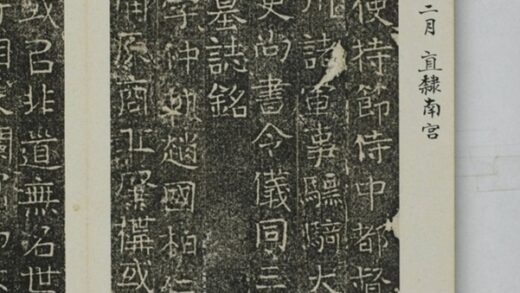 二月 直隸南宮
使持節侍中都督
州諸軍事驃騎大
吏尚書令儀同三
墓誌銘
字仲軌趙國柏仁
原商丘構或
或召非道無名世